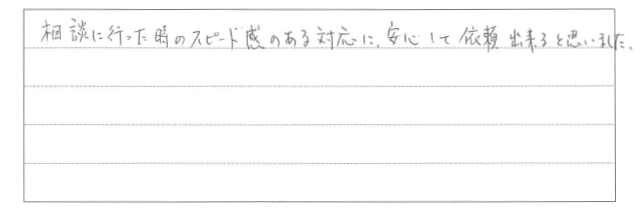 相談に行った時のスピード感のある対応に、安心して依頼出来ると思いました。